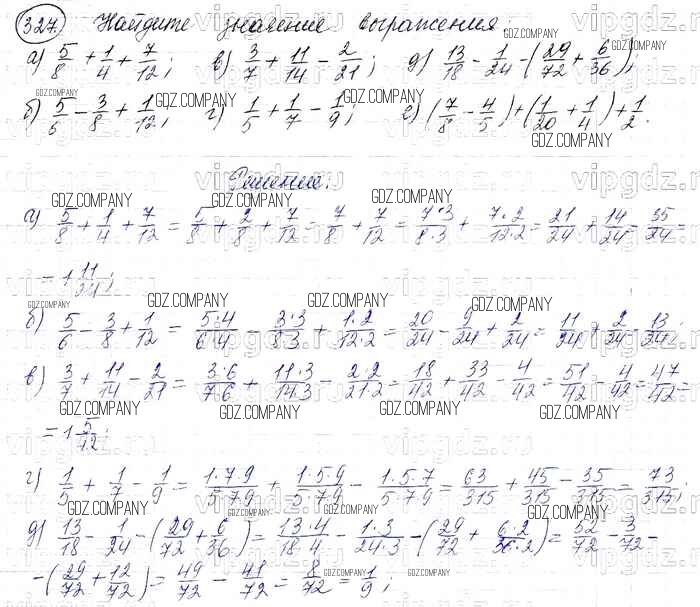 327. Найдите значение выражения:
а) 5/8 + 1/4 + 7/12; в) 3/7 + 11/14 - 2/21; д) 13/18 - 1/24 - (29/72 + 6/36);
б) 5/6 - 3/8 + 1/12; г) 1/5 + 1/7 - 1/9; е) (7/8 - 4/5) + (1/20 + 1/4) + 1/2.
Решение:
а) 5/8 + 1/4 + 7/12 = 5/8 + 2/8 + 7/12 = 7/8 + 7/12 = 7·3/8·3 + 7·2/12·2 = 21/24 + 14/24 = 35/24 =
= 1 11/24;
б) 5/6 - 3/8 + 1/12 = 5·4/6·4 - 3·3/8·3 + 1·2/12·2 = 20/24 - 9/24 + 2/24 = 11/24 + 2/24 = 13/24;
в) 3/7 + 11/14 - 2/21 = 3·6/7·6 + 11·3/14·3 - 2·2/21·2 = 18/42 + 33/42 - 4/42 = 51/42 - 4/42 = 47/42 =
= 1 5/42;
г) 1/5 + 1/7 - 1/9 = 1·7·9/5·7·9 + 1·5·9/5·7·9 - 1·5·7/5·7·9 = 63/315 + 45/315 - 35/315 = 73/315;
д) 13/18 - 1/24 - (29/72 + 6/36) = 13·4/18·4 - 1·3/24·3 - (29/72 + 6·2/36·2) = 52/72 - 3/72 -
- (29/72 + 12/72) = 49/72 - 41/72 = 8/72 = 1/9;
GDZ.COMPANY
vipgdz.ru